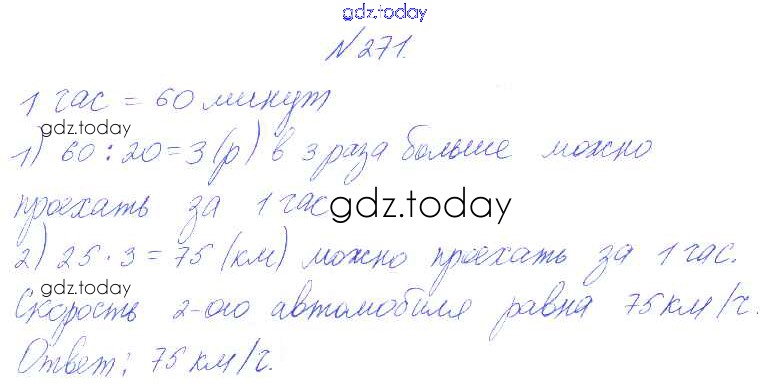 gdz.today
№271.
1 час = 60 минут
gdz.today
1) 60 : 20 = 3 (р) в 3 раза больше можно
проехать за 1 час
gdz.today
2) 25 · 3 = 75 (км) можно проехать за 1 час.
gdz.today
Скорость 2-ого автомобиля равна 75 км/ч.
Ответ: 75 км/ч.